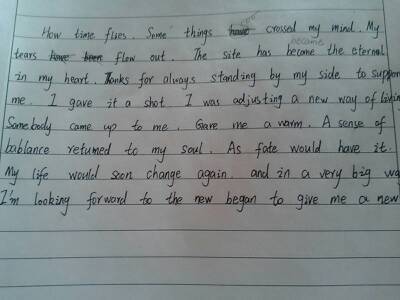 How time flies. Some things have crossed my mind. My
tears have been flow out. The site has became the eternal
became
in my heart. Thanks for always standing by my side to suppor
me. I gave it a shot. I was adjusting a new way of living
Somebody came up to me. Gave me a warm. A sense of
bablance returned to my soul. As fate would have it.
My life would soon change again. and in a very big wa
I'm looking forward to the new began to give me a new